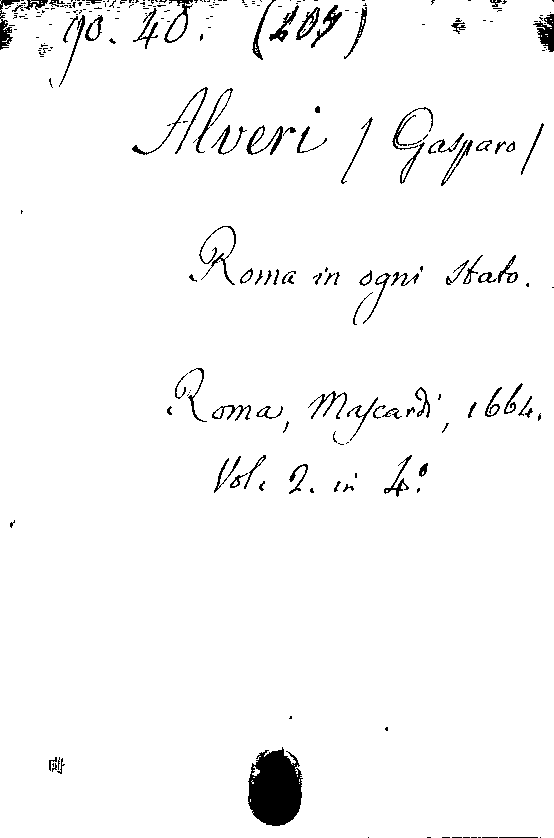 90. 40. (205)
Alveri / Gasparo /
Roma in ogni stato.
Roma, Mascardi, 1664.
Vol. 2. in 4.º